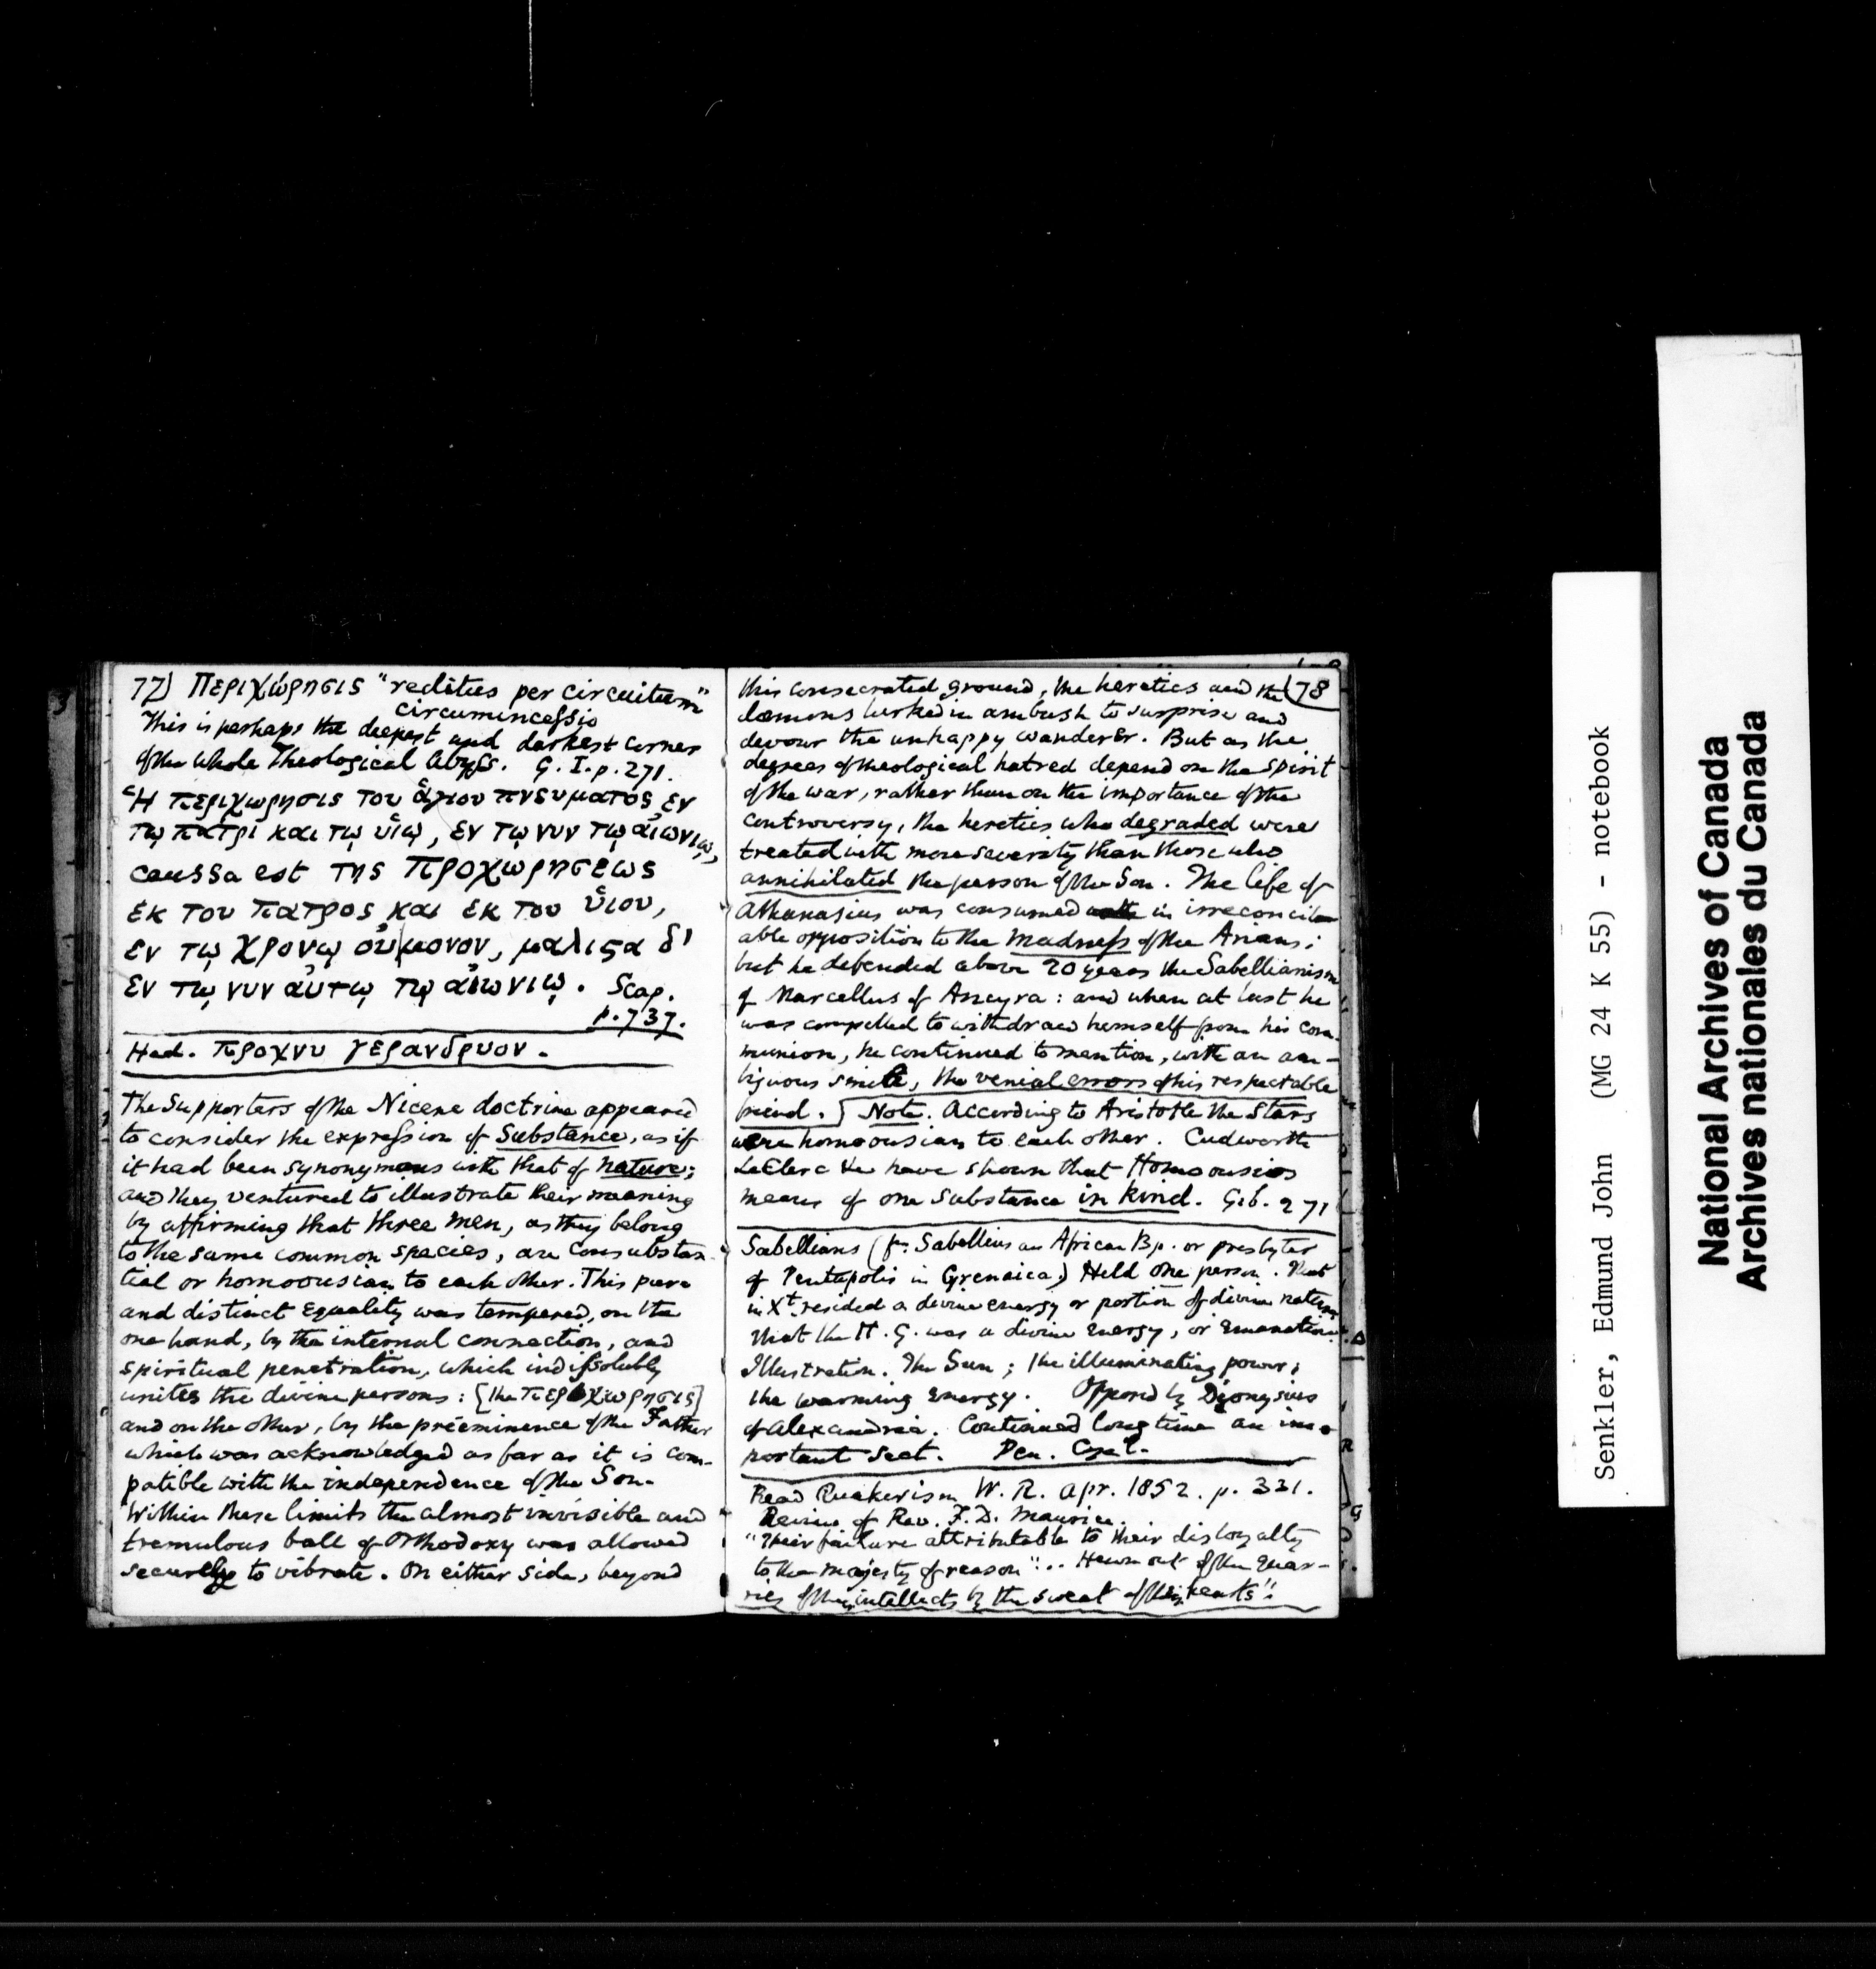 77) Περιχώρησις "reditus per circuitum"
circumincessio
This is perhaps the deepest and darkest corner
of the whole Theological Abyss. G. I. p. 271.
Ἡ περιχωρησις του ἅγιου πνευματος εν
τῳ πατρι και τῳ ὑιῳ, εν τῳ νυν τῳ αἰωνιῳ,
caussa est της προχωρησεως
εκ του πατρος και εκ του ὑιου,
εν τῳ χρονῳ οὐ μονον, μαλιϛα δ'
εν τῳ νυν αὐτῳ τῳ αἰωνιῳ. Scap.
p. 737.
Hed. προχνυ γερανδρυον.
The Supporters of the Nicene doctrine appeared
to consider the expression of Substance, as if
it had been synonymous with that of nature;
and they ventured to illustrate their meaning
by affirming that three men, as they belong
to the same common species, are consubstan-
tial or homoousian to each other. This pure
and distinct Equality was tempered, on the
one hand, by the internal connection, and
spiritual penetration, which indissolubly
unites the divine persons: [the περιχωρησις]
and on the other, by the preeminence of the Father
which was acknowledged as far as it is com-
patible with the independence of the Son.
Within these limits the almost invisible and
tremulous ball of Orthodoxy was allowed
securely to vibrate. On either side, beyond
this consecrated ground, the heretics and the 78
dæmons lurked in ambush to surprise and
devour the unhappy wanderer. But as the
degrees of theological hatred depend on the spirit
of the war, rather than on the importance of the
controversy, the heretics who degraded were
treated with more severity than those who
annihilated the person of the Son. The life of
Athanasius was consumed in irreconcile
able opposition to the madness of the Arians;
but he defended above 20 years the Sabellianism
of Marcellus of Ancyra: and when at last he
was compelled to withdraw himself from his com-
munion, he continued to mention, with an am-
biguous smile, the venial errors of his respectable
friend. ] Note. According to Aristotle the Stars
were homoousian to each other. Cudworth
LeClerc &c have shown that Homoousios
means of one substance in kind. Gib. 271
Sabellians (fr. Sabellius an African Bp. or presbyter
of Pentapolis in Cyrenaica) Held One person. That
in Xt. resided a divine energy or portion of divine nature
that the H. G. was a divine energy, or emanation.
Illustration. The Sun; the illuminating power;
the warming energy. Opposed by Dionysius
of Alexandria. Continued long time an im-
portant sect. Pen. Cycl.
Read Quakerism W. R. Apr. 1852. p. 331.
Review of Rev. F. D. Maurice.
"Their failure attributable to their disloyalty
to the majesty of reason"... Hewn out of the quar-
ries of their intellects by the sweat of their hearts"!
Senkler, Edmund John (MG 24 K 55) - notebook
National Archives of Canada
Archives nationales du Canada